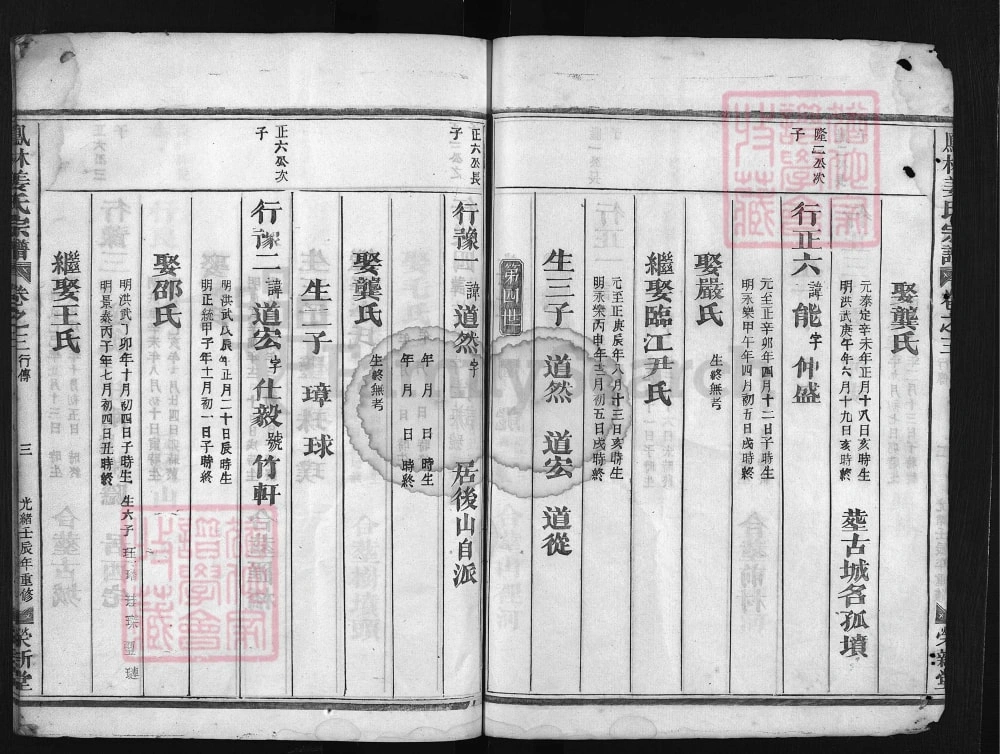 娶龔氏
元泰定辛未年正月十八日亥時生
明洪武庚午年六月十九日亥時終
塟古城名孤墳
隆二公次子
行正六 諱能字仲盛
元至正辛卯年四月十二日子時生
明永樂甲午年四月初五日戌時終
娶嚴氏
生終無考
繼娶臨江尹氏
元至正庚辰年八月十三日亥時生
明永樂丙申年三月初五日戌時終
生三子 道然 道宏 道從
第四世
正六公長子
行豫一 諱道然字
居後山自派
年 月 日 時生
年 月 日 時終
娶龔氏
生終無考
生二子 璋 球
正六公次子
行豫二 諱道宏字仕毅號竹軒
明洪武戊辰年正月二十日辰時生
明正統甲子年十一月初一日子時終
娶邵氏
明洪武丁卯年十月初四日子時生
明景泰丙子年七月初四日丑時終
生六子
繼娶王氏
鳳林姜氏宗譜 卷之三 行傳 三 光緒壬辰年重修 榮新堂